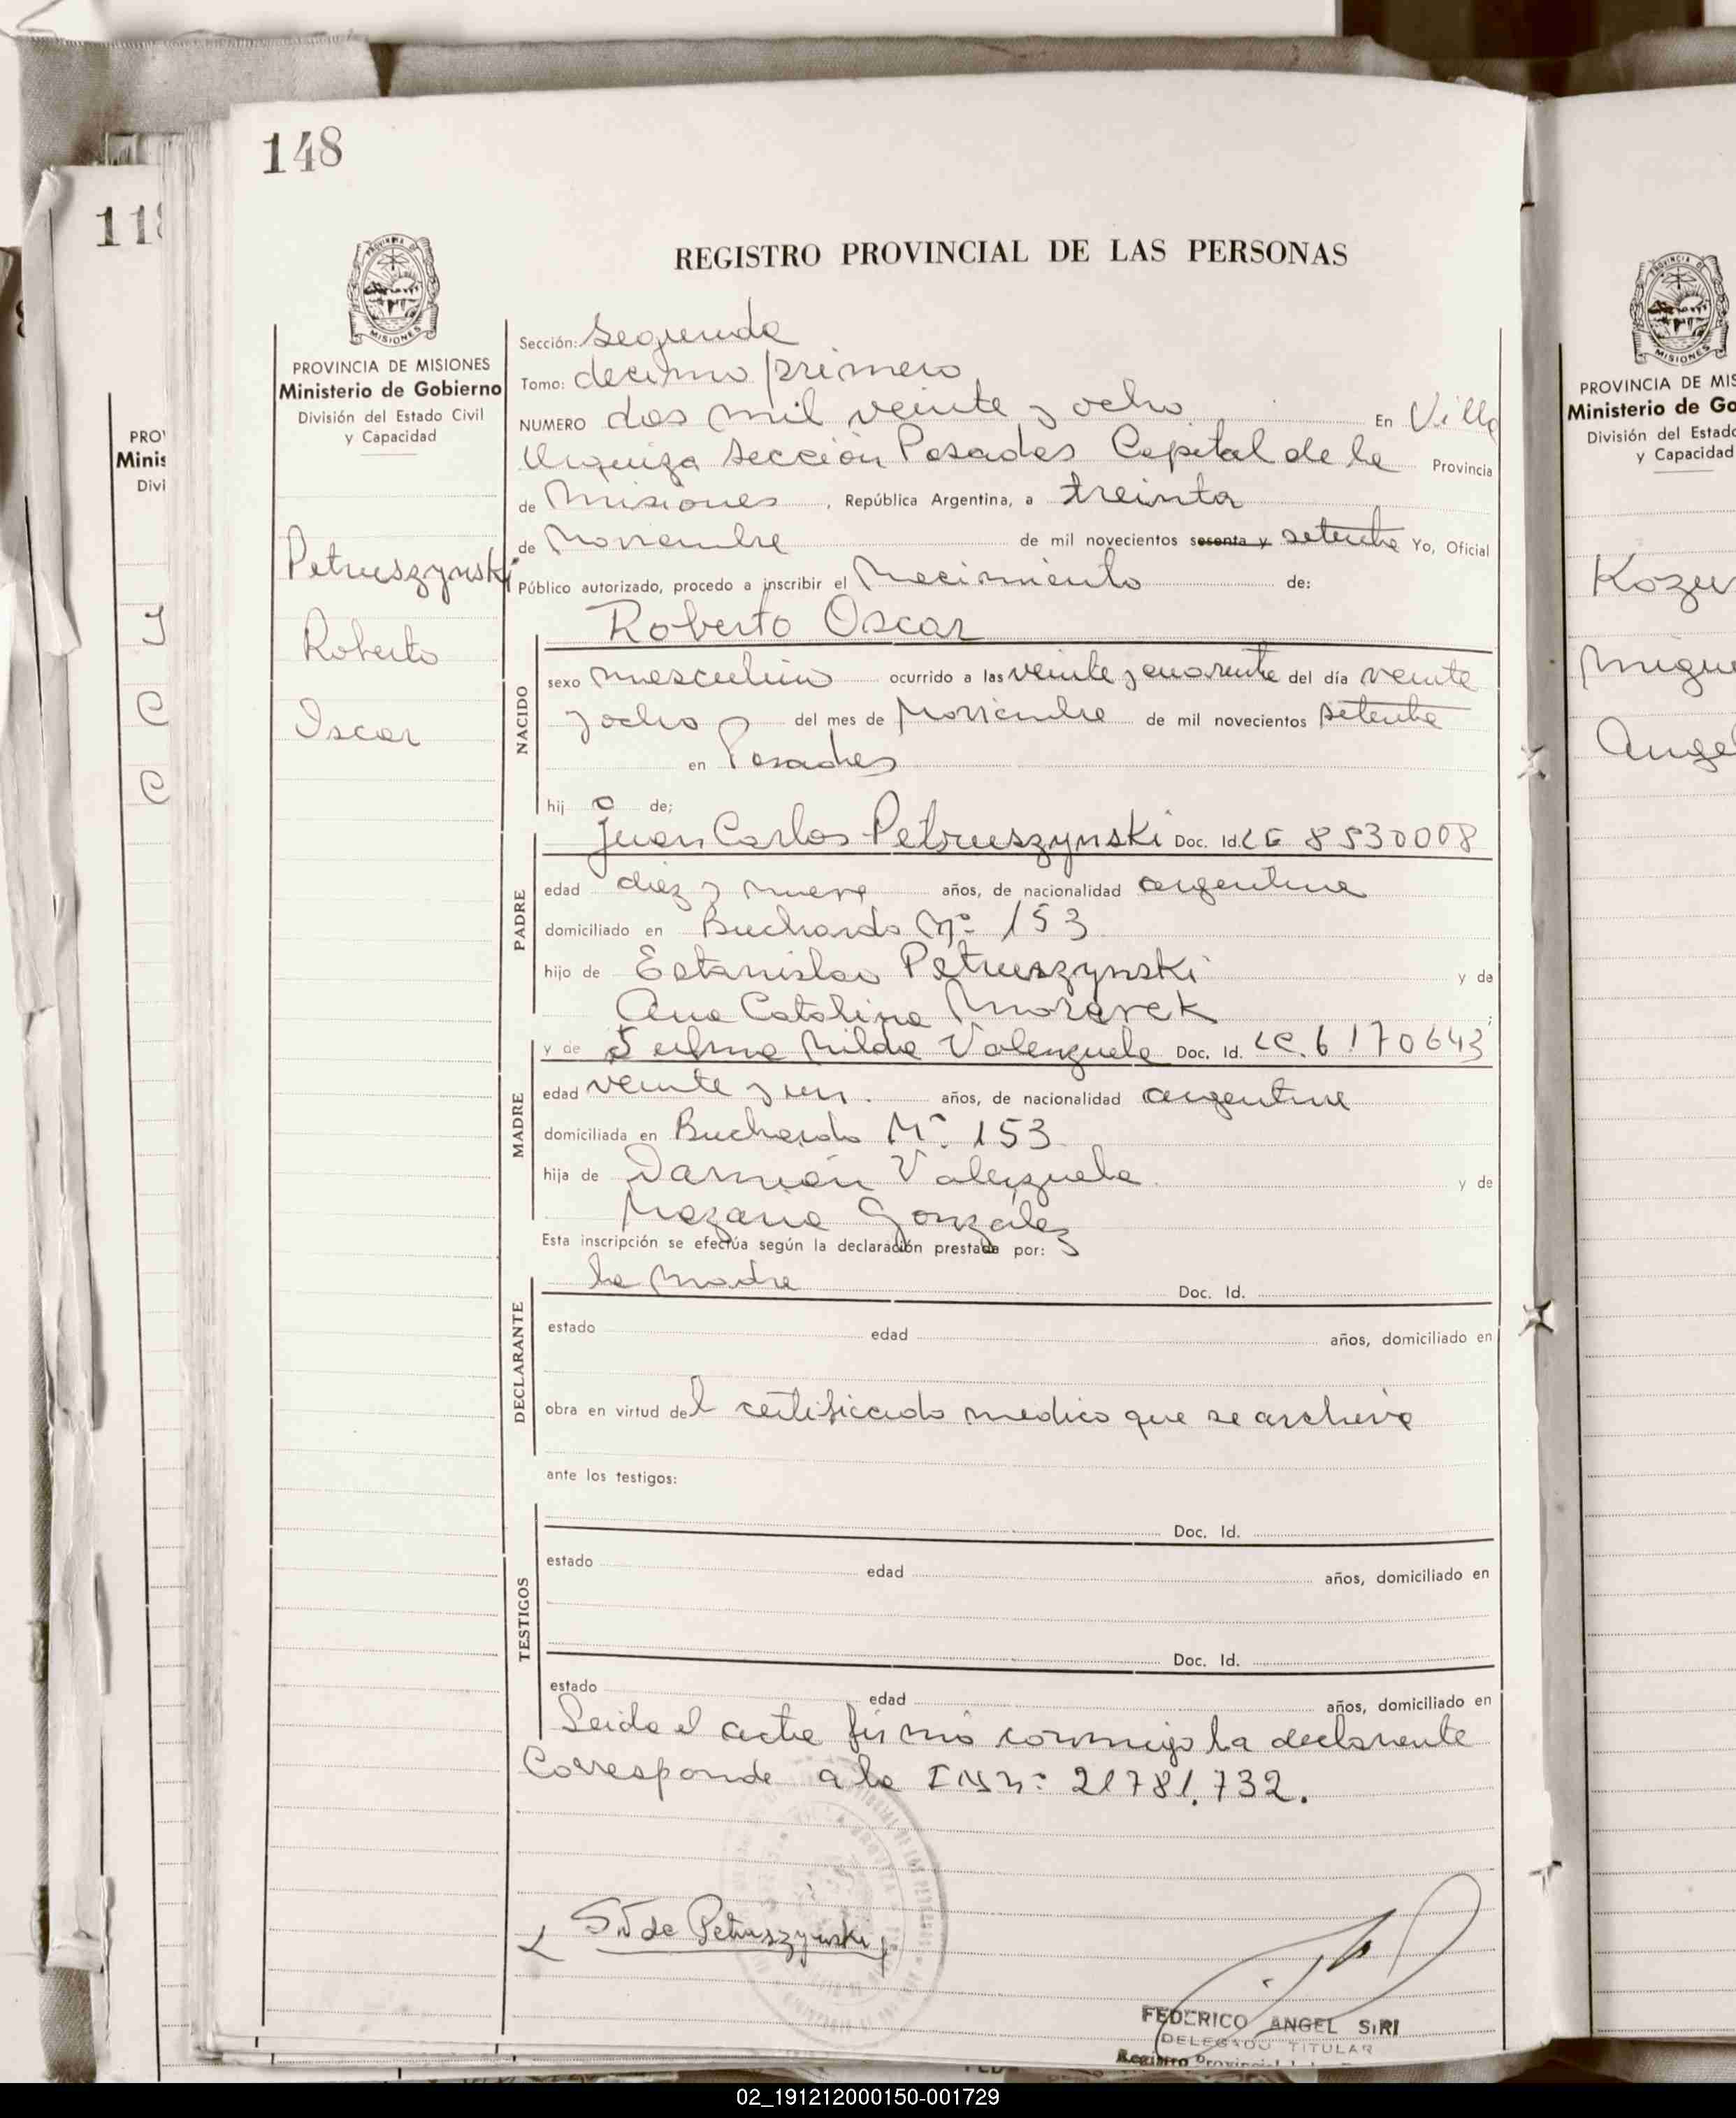 148
118
REGISTRO PROVINCIAL DE LAS PERSONAS
PROVINCIA DE MISIONES
Ministerio de Gobierno
División del Estado Civil
y Capacidad
Petruszynski
Roberto
Oscar
Sección: segunda
Tomo: decimo primero
NUMERO dos mil veinte y ocho En Villa
Urquiza sección Posadas Capital de la Provincia
de Misiones, República Argentina, a treinta
de Noviembre de mil novecientos sesenta y setenta Yo, Oficial
Público autorizado, procedo a inscribir el Nacimiento de:
Roberto Oscar
NACIDO
sexo masculino ocurrido a las veinte y cuarenta del día veinte
y ocho del mes de Noviembre de mil novecientos setenta
en Posadas
hijo de;
PADRE
Juan Carlos Petruszynski Doc. Id. 8530008
edad diez y nueve años, de nacionalidad argentina
domiciliado en Buchardo Nº 153
hijo de Estanislao Petruszynski y de
Ana Catalina
MADRE
y de Nilda Valenzuela Doc. Id. LC. 6170643
edad veinte y un años, de nacionalidad argentina
domiciliada en Buchardo Nº 153
hija de Damián Valenzuela y de
González
Esta inscripción se efectúa según la declaración prestada por:
DECLARANTE
la Madre Doc. Id.
estado edad años, domiciliado en
obra en virtud del certificado medico que se archiva
ante los testigos:
TESTIGOS
Doc. Id.
estado edad años, domiciliado en
Doc. Id.
estado edad años, domiciliado en
Leida el acta firmó conmigo la declarante
Corresponde a la 21781.732.
de Petruszynski
FEDERICO ANGEL SIRI
DELEGADO TITULAR
Registro Provincial
PROVINCIA DE MIS
Ministerio de Go
División del Estado
y Capacidad
Kozur
Migue
Ange
02_191212000150-001729